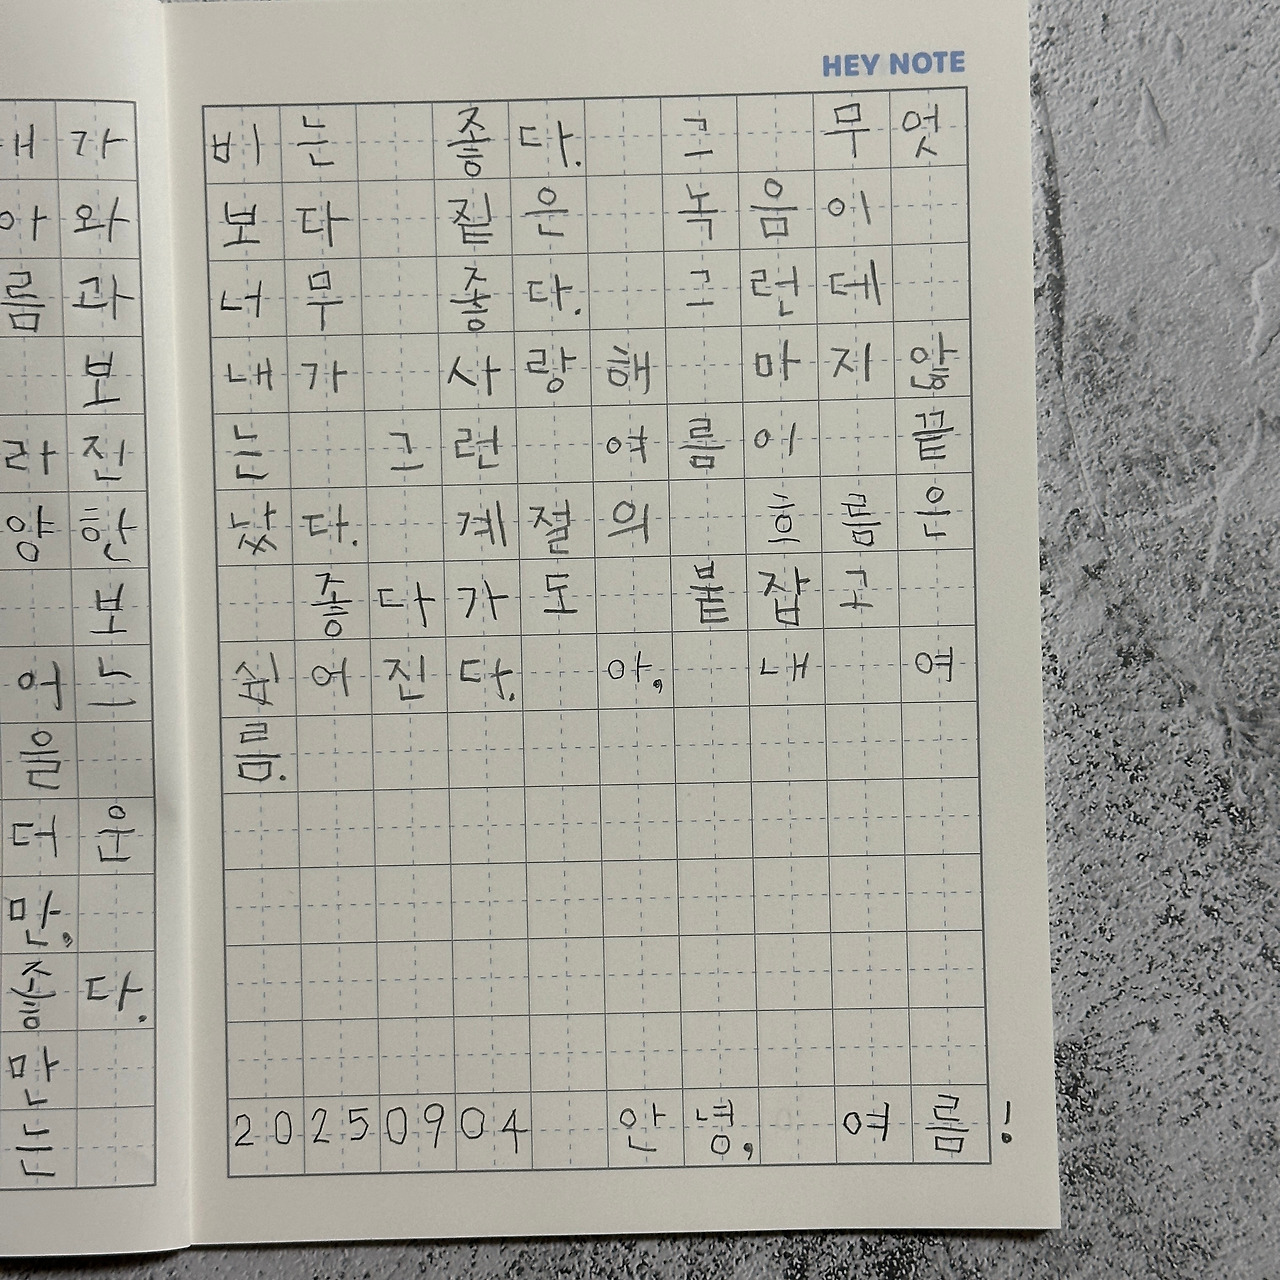 가
아와
름과
보
라진
양한
보
음
더운
만,
좋다.
만
HEY NOTE
비는 좋다. 그 무엇
보다 짙은 녹음이
너무 좋다. 그런데
내가 사랑해 마지 않
는 그런 여름이 끝
났다. 계절의 흐름은
좋다가도 붙잡고
싶어진다. 아, 내 여
름.
20250904 안녕, 여름!